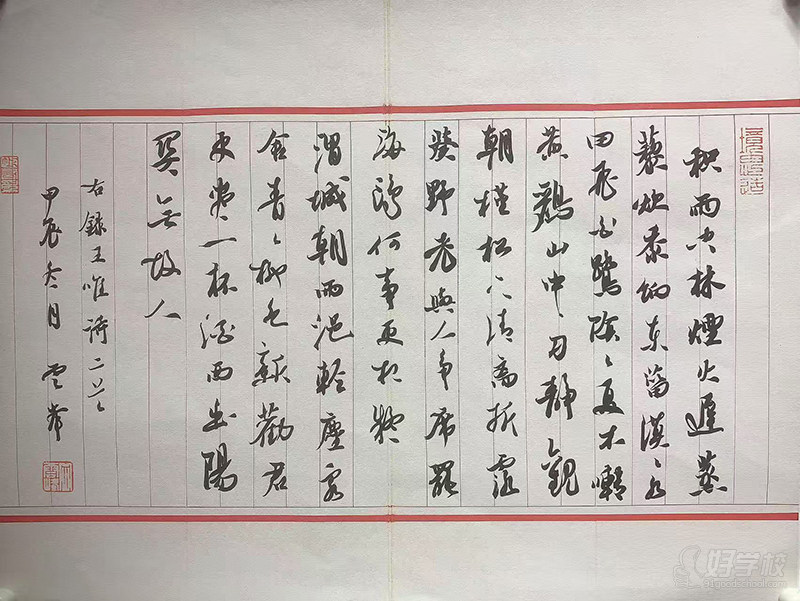 积雨空林煙火遲蒸
藜炊黍餉东菑漠〻水
田飛白鷺陰〻夏木囀
黄鸝山中习静觀
朝槿松下清齋折露
葵野老與人爭席罷
海鷗何事更相疑
渭城朝雨浥輕塵客
舍青〻柳色新勸君
更尽一杯酒西出陽
関无故人
右録王唯詩二首
甲辰冬月 雲峯
好学校